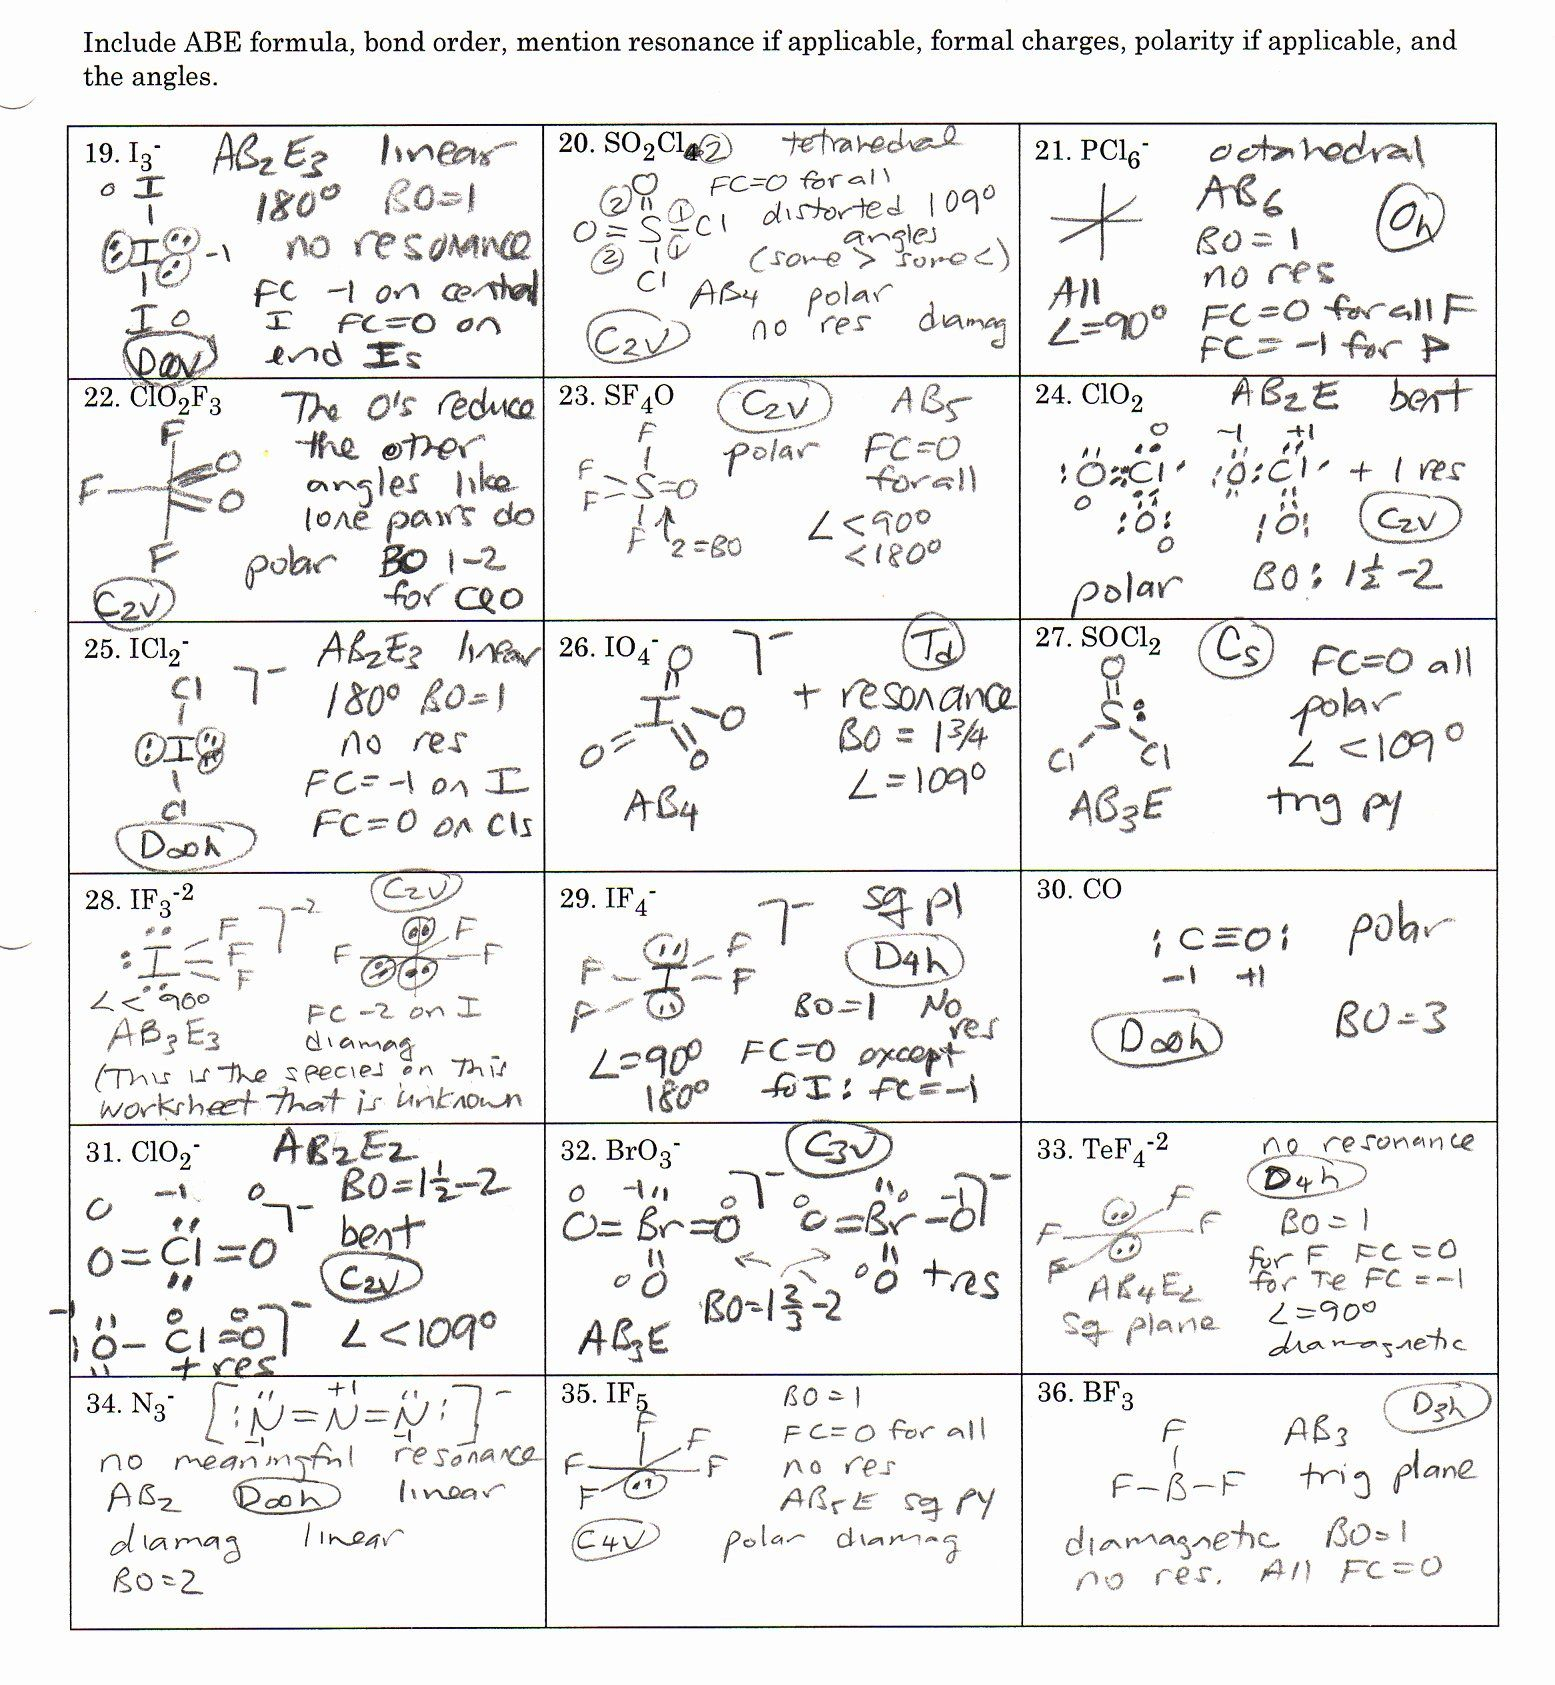 Include ABE formula, bond order, mention resonance if applicable, formal charges, polarity if applicable, and
the angles.
19. I3-
AB2E3 linear
180° BO=1
0 I
I -1
I 0
no resonance
FC -1 on central
I FC=0 on
end Is
D∞v
20. SO2Cl 2
tetrahedral
FC=0 for all
distorted 109°
angles
(some > some <)
2 O 1
O = S - Cl
2 1
Cl
AB4 polar
no res diamag
C2v
21. PCl6-
octahedral
AB6
Oh
BO=1
no res
All
∠=90°
FC=0 for all F
FC=-1 for P
22. ClO2F3
The O's reduce
the other
angles like
lone pairs do
F
F O
O
F
polar BO 1-2
for ClO
C2v
23. SF4O
C2v AB5
polar FC=0
for all
F
F
F S=O
F 2=BO
∠<90°
<180°
24. ClO2
AB2E bent
0 -1 +1
:O::Cl· :O:Cl· + 1 res
0
:O: :O:
0
C2v
polar BO: 1½-2
25. ICl2-
AB2E3 linear
180° BO=1
no res
FC=-1 on I
FC=0 on Cls
Cl ⁻
I
Cl
D∞h
26. IO4-
Td
O ⁻
I - O
O= O
+ resonance
BO = 1¾
∠=109°
AB4
27. SOCl2
Cs FC=0 all
polar
∠<109°
O
S:
Cl Cl
AB3E trig py
28. IF3-2
C2v
:I F F F -2
F F F
∠<90°
FC -2 on I
AB3E3 diamag
(This is the species on this
worksheet that is unknown
29. IF4-
sq pl
D4h
F I F F ⁻
F
BO=1 No
res
∠=90° FC=0 except
180° for I: FC=-1
30. CO
:C≡O: polar
-1 +1
D∞h BO=3
31. ClO2-
AB2E2
BO=1½-2
bent
C2v
0 -1 0
O=Cl=O ⁻
-1 0 0
:O-Cl=O ⁻
+ res
∠<109°
32. BrO3-
C3v
0 -1 0 0 0 -1
O=Br=O ⁻ O=Br-O ⁻
0 O 0 O +res
BO=1⅔-2
AB3E
33. TeF4-2
no resonance
D4h
BO=1
for F FC=0
for Te FC=-1
∠=90°
diamagnetic
F F F
F
AB4E2
sq plane
34. N3-
[:N=N=N:]-
+1
-1 -1
no meaningful resonance
AB2 D∞h linear
diamag linear
BO=2
35. IF5
BO=1
FC=0 for all
no res
AB5E sq py
F
F F F
F
C4v polar diamag
36. BF3
D3h
F AB3
F-B-F trig plane
diamagnetic BO=1
no res. All FC=0